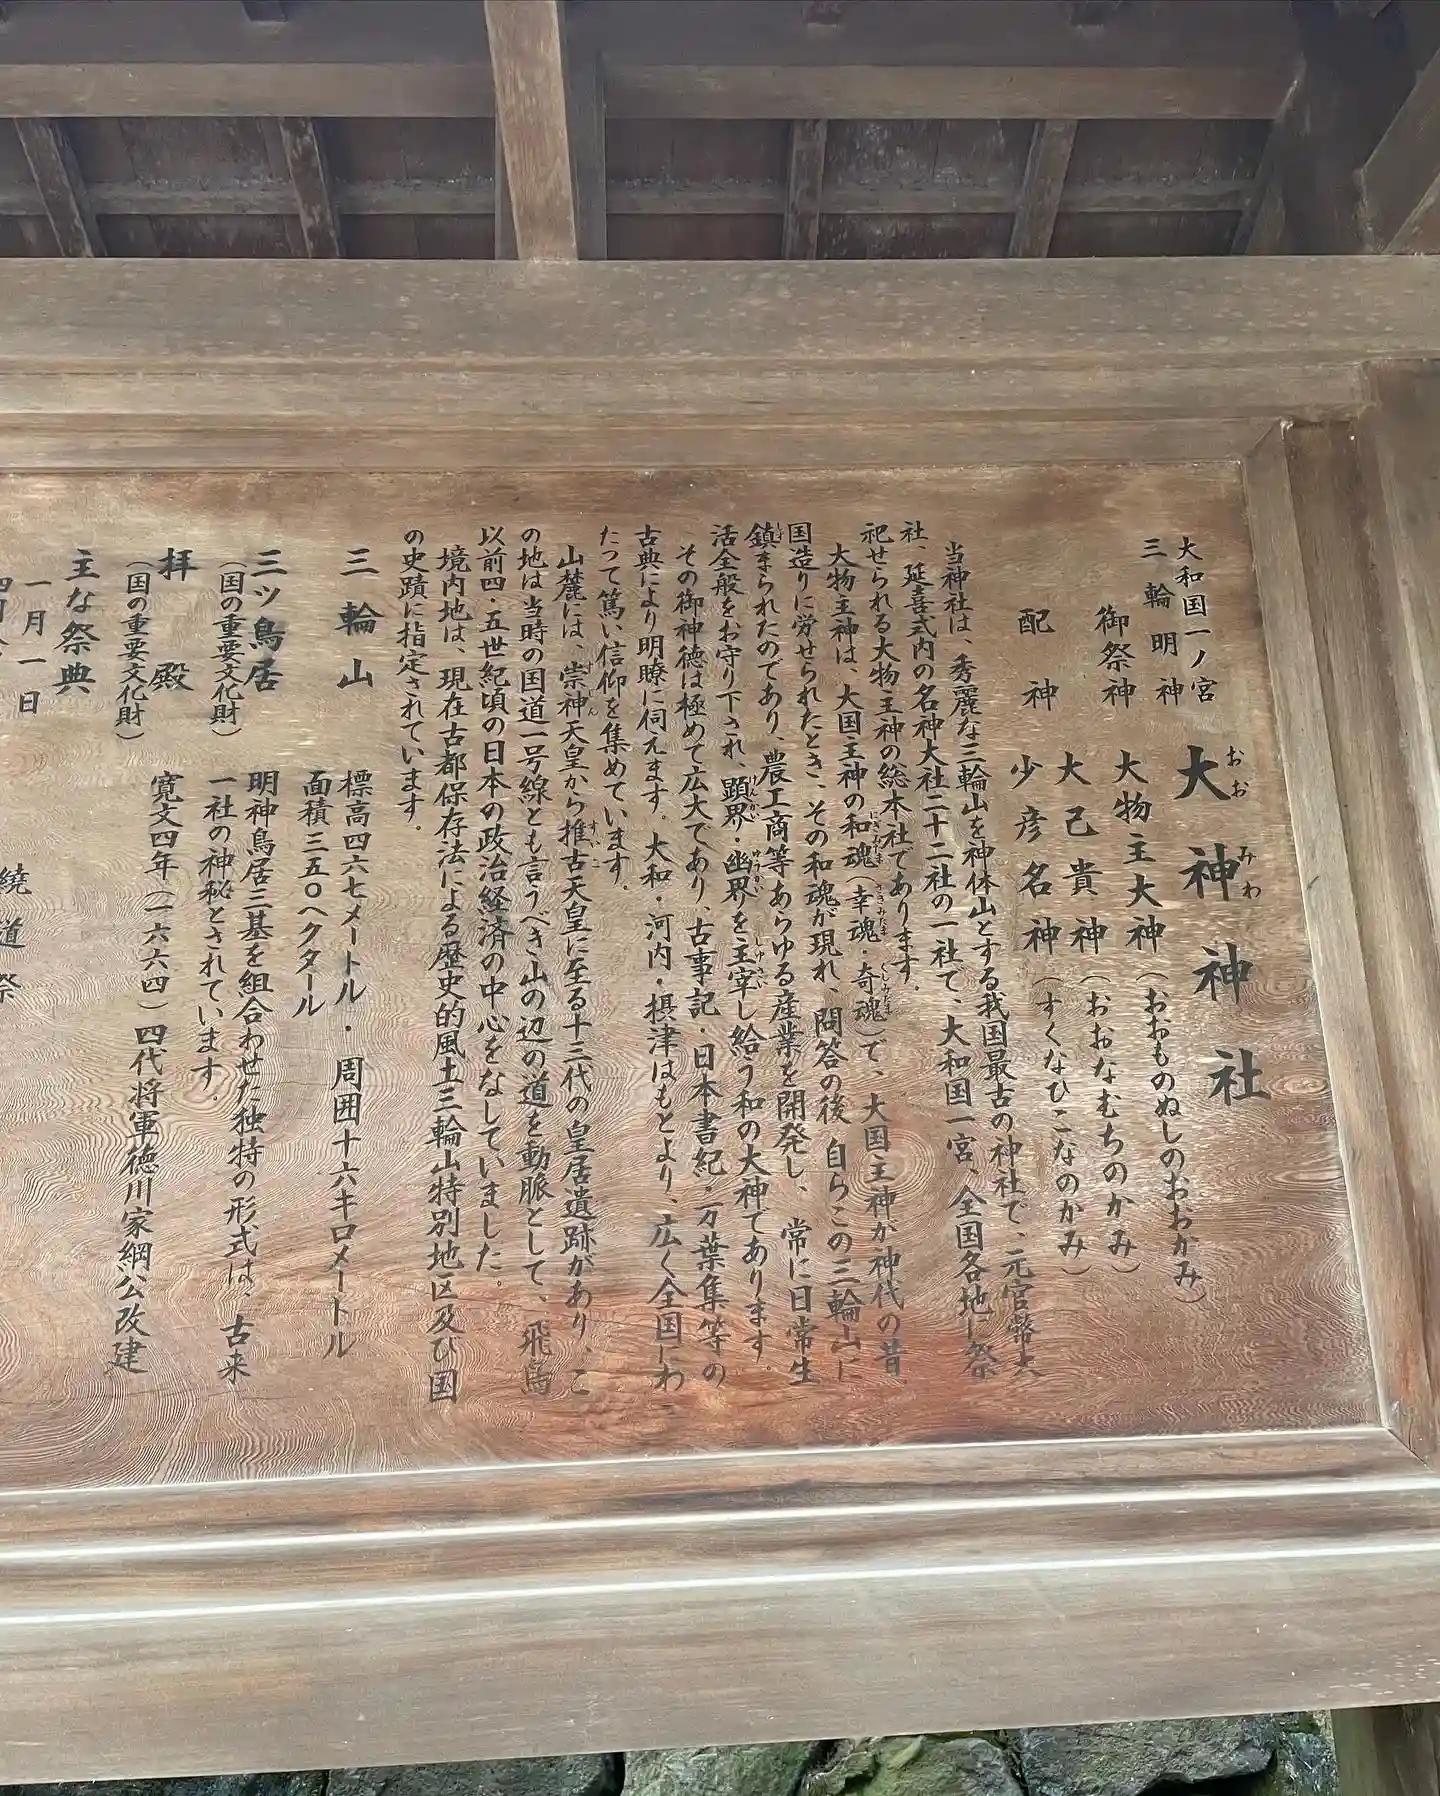 大和国一ノ宮
三輪明神
大神神社
おおみわ
御祭神 大物主大神（おおものぬしのおおかみ）
配神 大己貴神（おおなむちのかみ）
少彦名神（すくなひこなのかみ）
当神社は、秀麗な三輪山を神体山とする我国最古の神社で、元官幣大
社、延喜式内の名神大社二十二社の一社で、大和国一宮、全国各地に祭
祀せられる大物主神の総本社であります。
大物主神は、大国主神の和魂（幸魂・奇魂）で、大国主神が神代の昔
にぎみたま さきみたま くしみたま
国造りに労せられたとき、その和魂が現れ、問答の後 自らこの三輪山に
鎮まられたのであり、農工商等あらゆる産業を開発し、常に日常生
しず
活全般をお守り下され、顕界・幽界を主宰し給う和の大神であります。
けんかい ゆうかい しゅさい
その御神徳は極めて広大であり、古事記・日本書紀・万葉集等の
古典により明瞭に伺えます。大和・河内・摂津はもとより、広く全国にわ
たって篤い信仰を集めています。
山麓には、崇神天皇から推古天皇に至る十三代の皇居遺跡があり、こ
すじん すいこ
の地は当時の国道一号線とも言うべき山の辺の道を動脈として、飛鳥
以前四・五世紀頃の日本の政治経済の中心をなしていました。
境内地は、現在古都保存法による歴史的風土三輪山特別地区及び国
の史蹟に指定されています．
三輪山 標高四六七メートル・周囲十六キロメートル
面積三五〇ヘクタール
三ツ鳥居 明神鳥居三基を組合わせた独特の形式は、古来
（国の重要文化財） 一社の神秘とされています．
拝殿 寛文四年（一六六四）四代将軍徳川家綱公改建
（国の重要文化財）
主な祭典
一月一日 繞道祭